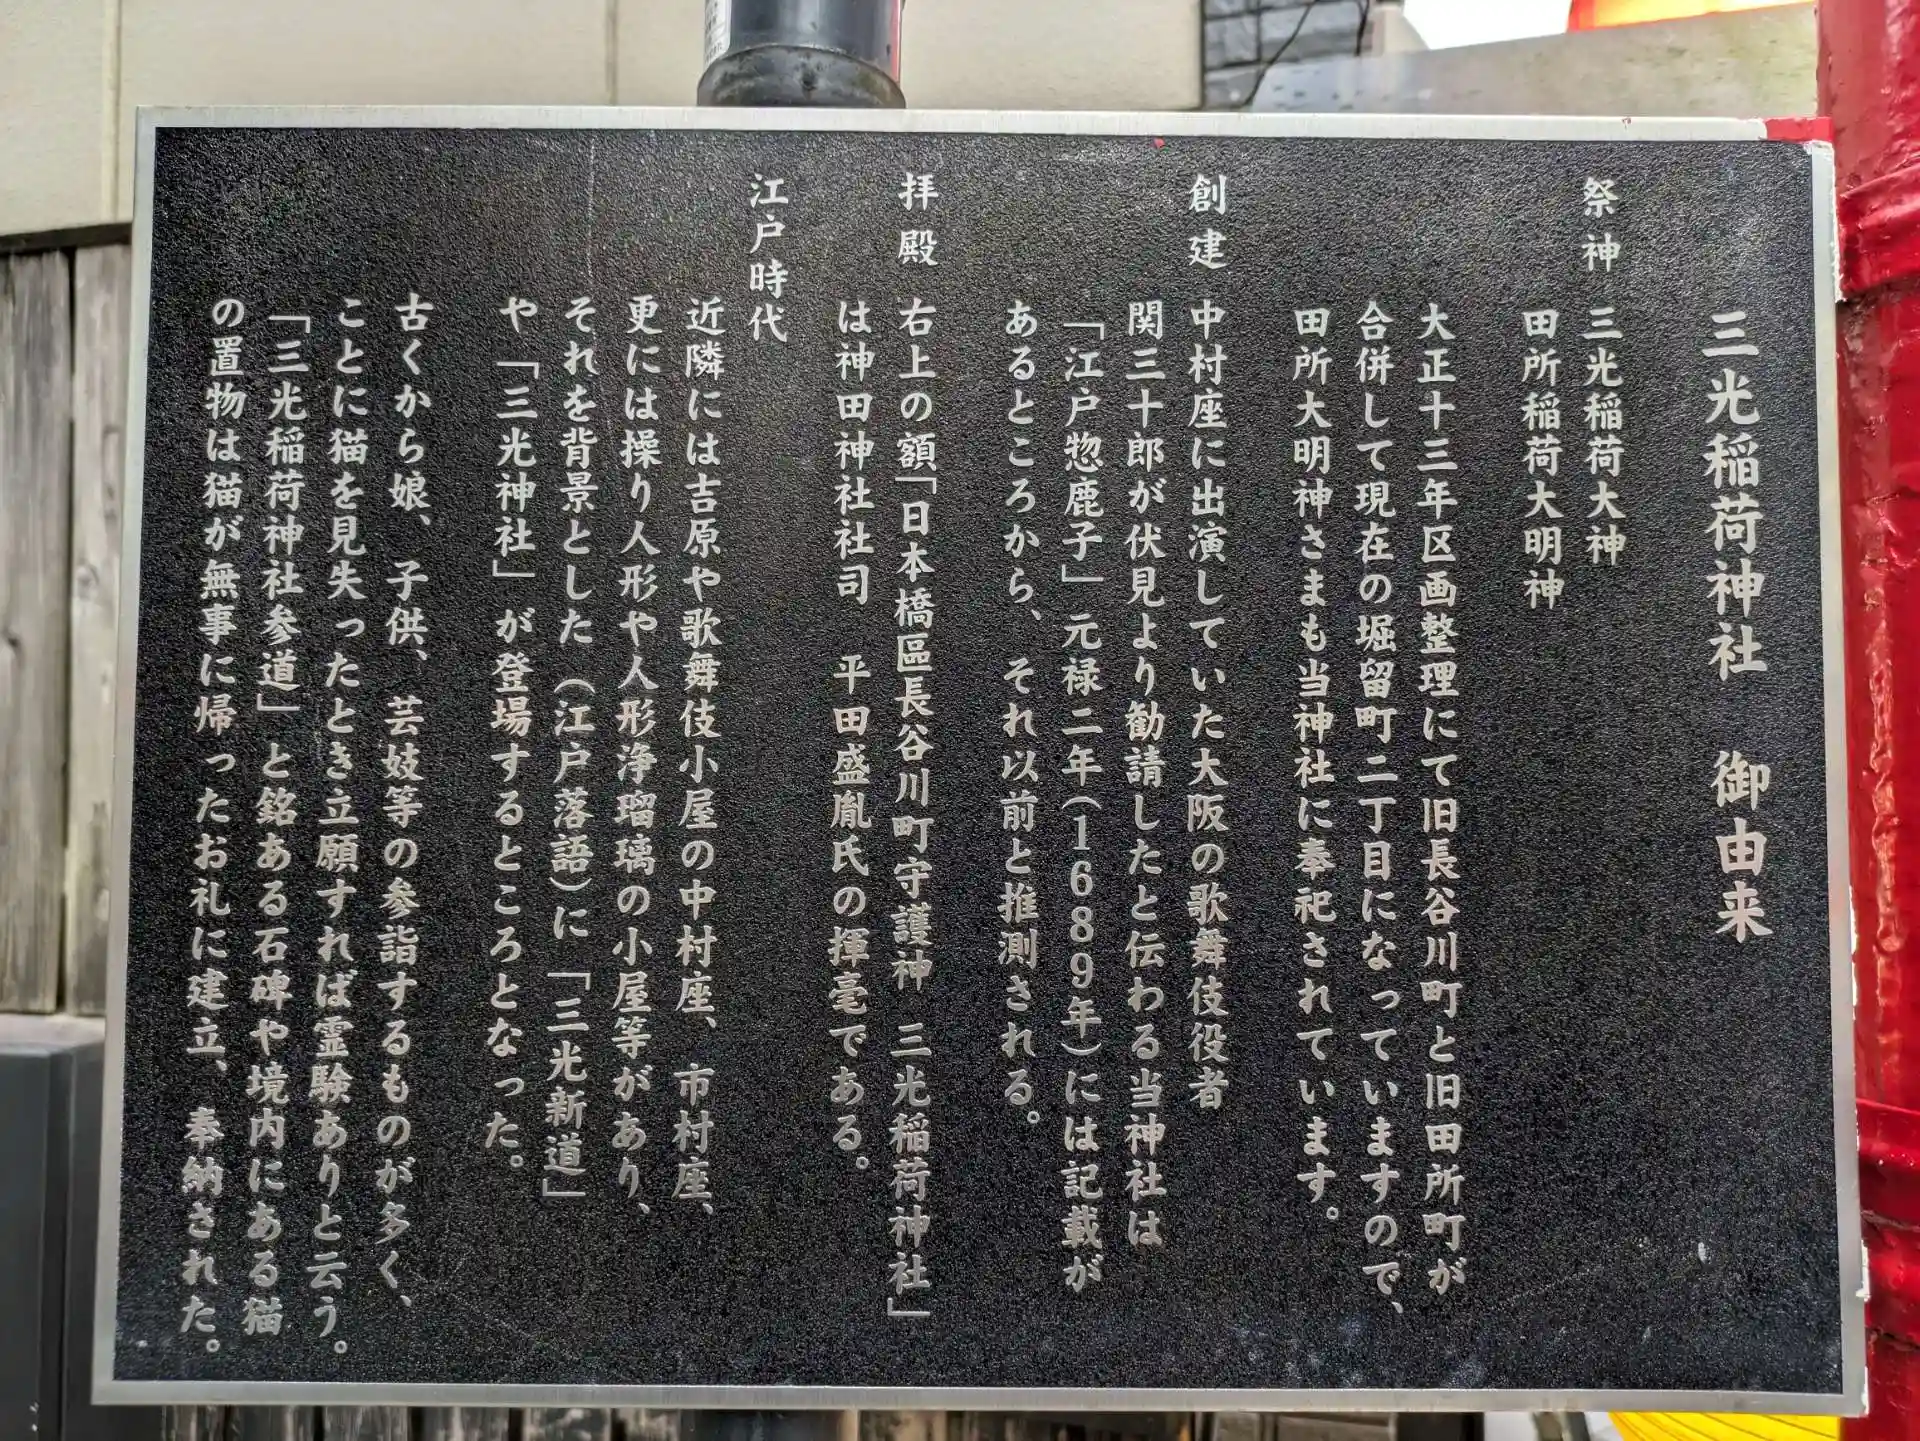 三光稲荷神社　御由来
祭神　三光稲荷大神
田所稲荷大明神
大正十三年区画整理にて旧長谷川町と旧田所町が
合併して現在の堀留町二丁目になっていますので、
田所大明神さまも当神社に奉祀されています。
創建　中村座に出演していた大阪の歌舞伎役者
関三十郎が伏見より勧請したと伝わる当神社は
「江戸惣鹿子」元禄二年（1689年）には記載が
あるところから、それ以前と推測される。
拝殿　右上の額「日本橋區長谷川町守護神　三光稲荷神社」
は神田神社社司　平田盛胤氏の揮毫である。
江戸時代
近隣には吉原や歌舞伎小屋の中村座、市村座、
更には操り人形や人形浄瑠璃の小屋等があり、
それを背景とした（江戸落語）に「三光新道」
や「三光神社」が登場するところとなった。
古くから娘、子供、芸妓等の参詣するものが多く、
ことに猫を見失ったとき立願すれば霊験ありと云う。
「三光稲荷神社参道」と銘ある石碑や境内にある猫
の置物は猫が無事に帰ったお礼に建立、奉納された。